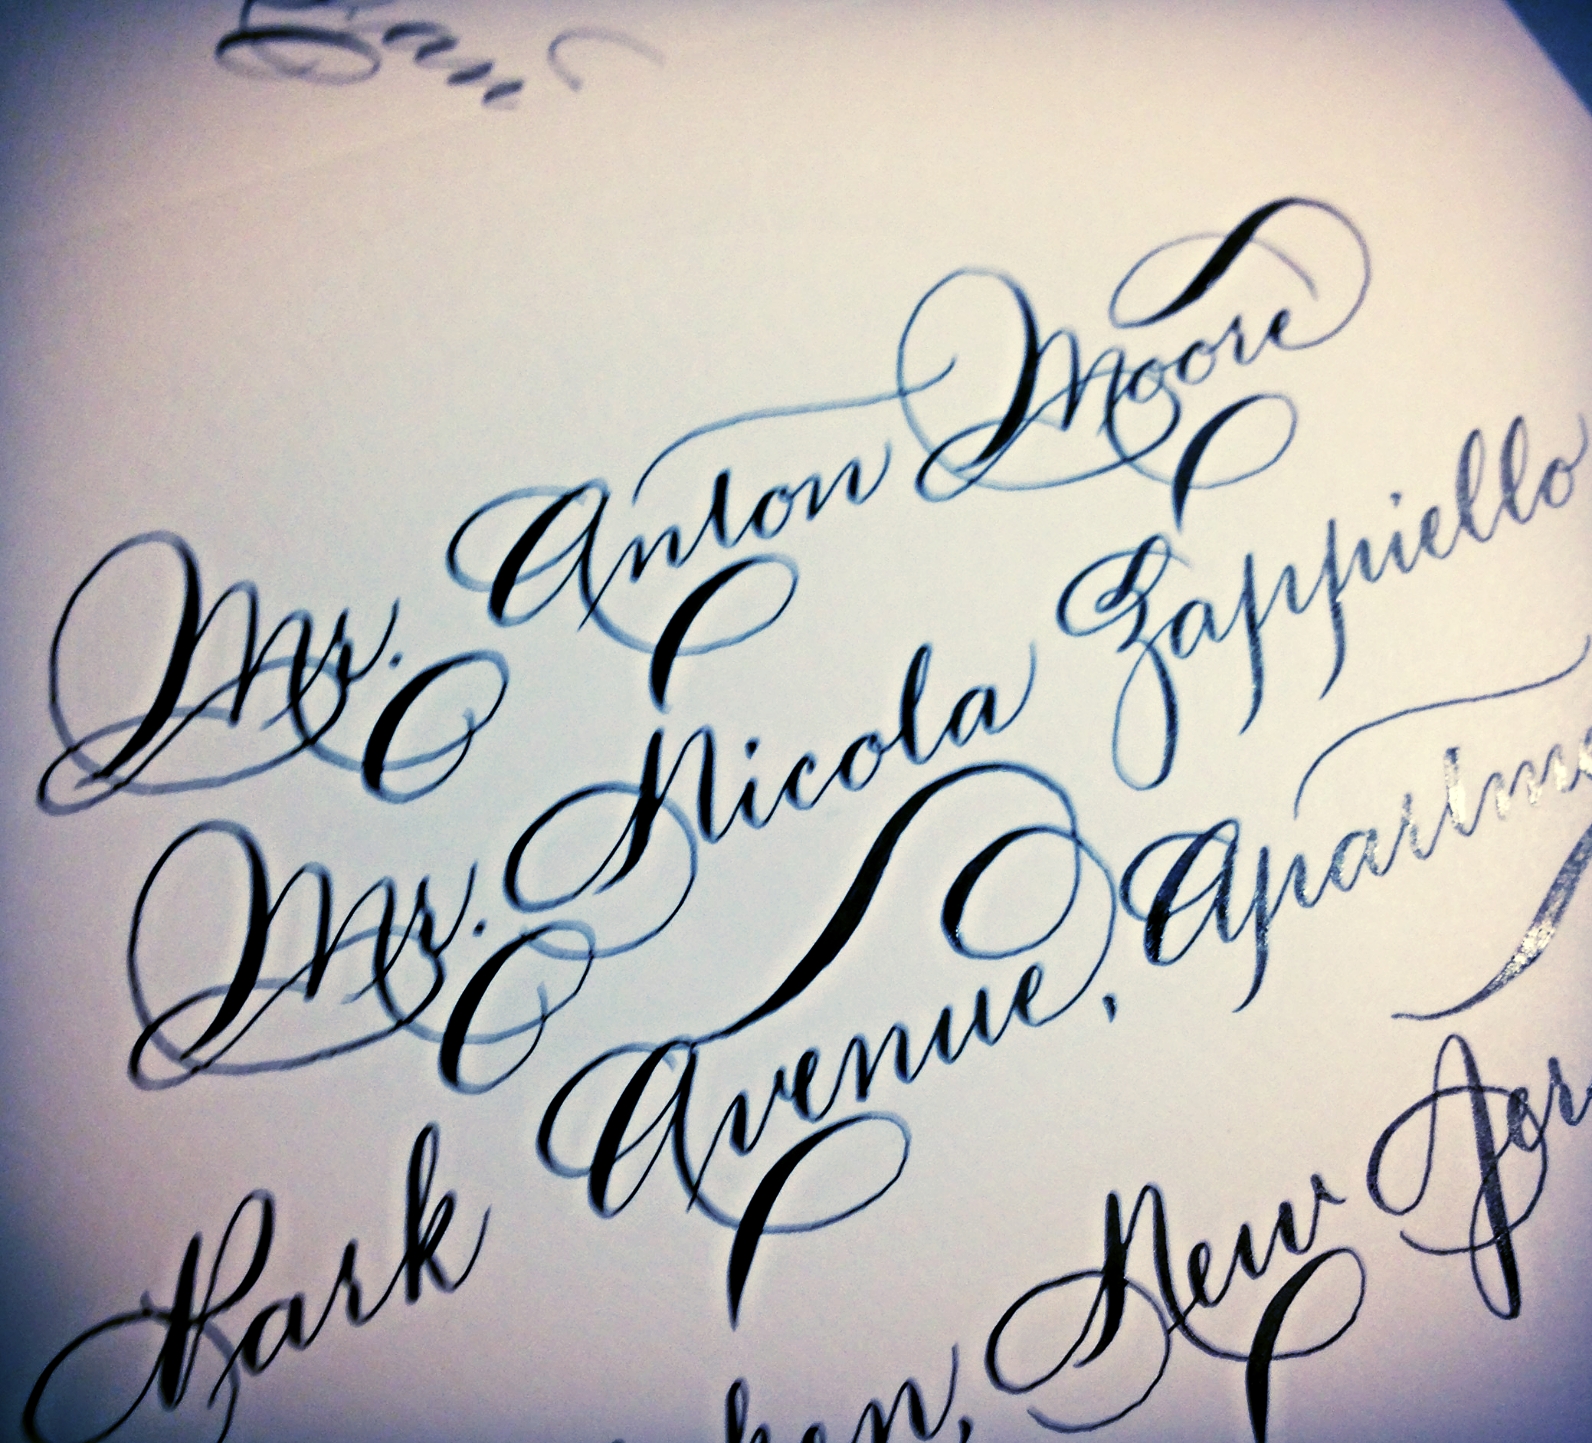 Mr. Anton Moore
Mr. Nicola Zappiello
Park Avenue, Apartme
ken, New Jer